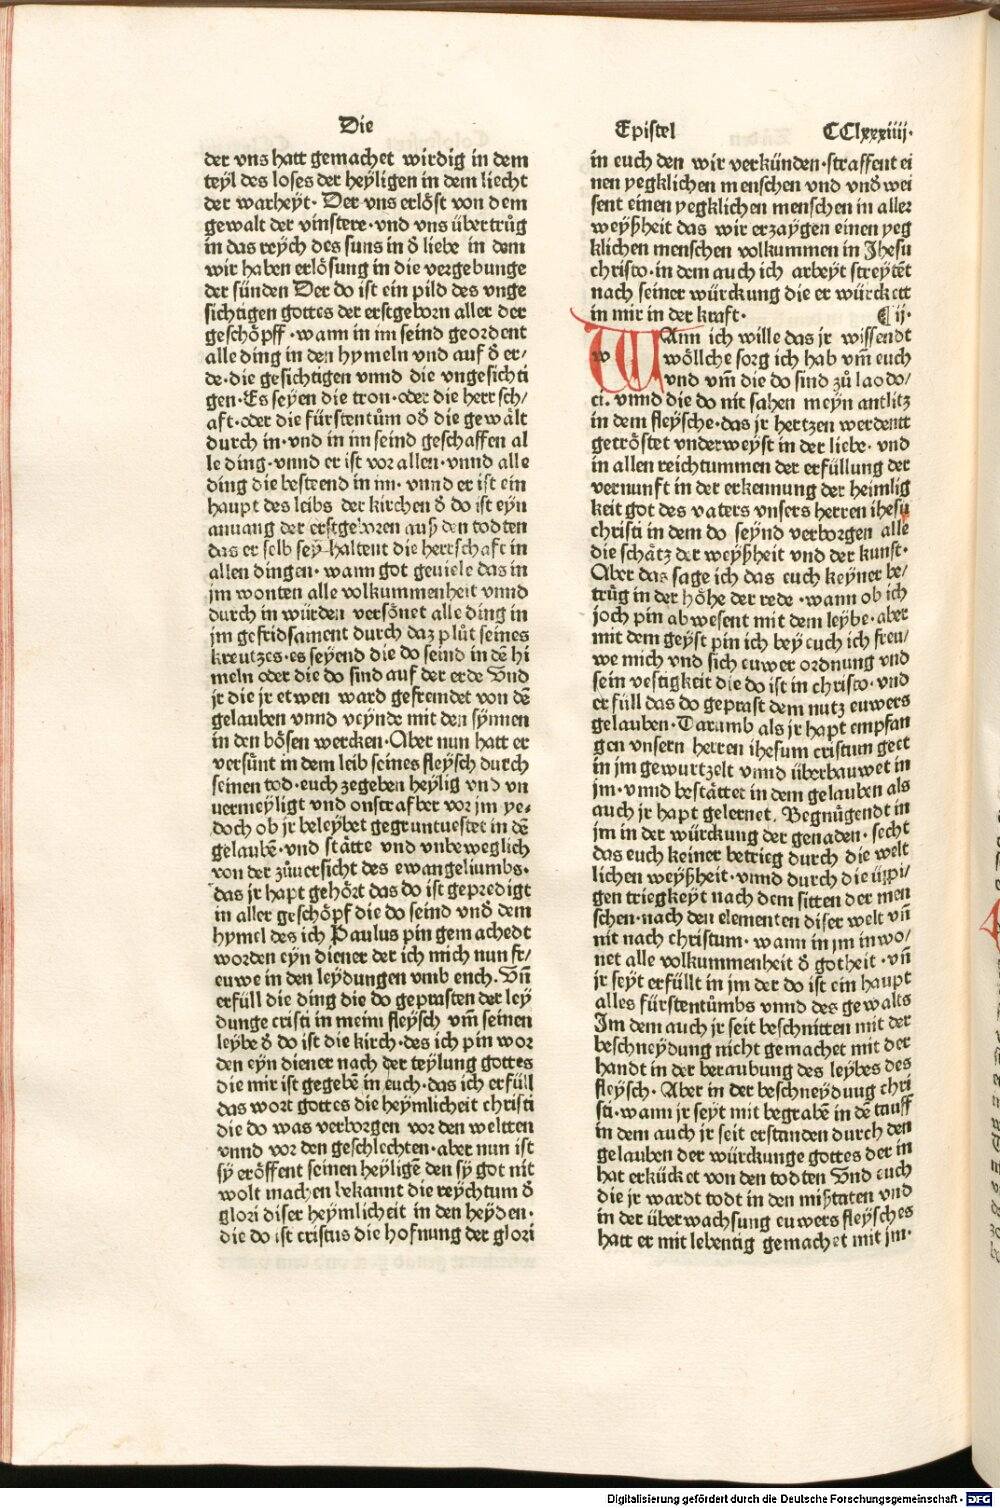 Die
der vns hatt gemachet wirdig in dem
teyl des loses der heyligen in dem liecht
der warheyt· Der vns erlöst von dem
gewalt der vinstere·vnd vns übertrůg
in das reych des suns in d̕ liebe in dem
wir haben erlösung in die vergebunge
der sünden Der do ist ein pild des vnge
sichtigen gottes der erstgeborn aller der
geschöpff·wann in im seind geordent
alle ding in den hymeln vnd auf d̕ er⸗
de·die gesichtigen vnnd die vngesichti
gen·Es seyen die tron·oder die herrsch⸗
aft·oder die fürstentům od̕ die gewält
durch in·vnd in im seind geschaffen al
le ding·vnnd er ist vor allen·vnnd alle
ding die besteend in im·vnnd er ist ein
haupt des leibs der kirchen d̕ do ist eyn
anuang der erstgeboren auß den todten
das er selb sey haltent die herrschaft in
allen dingen·wann got geuiele das in
jm wonten alle volkummenheit vnnd
durch in würden versönet alle ding in
jm gefridsament durch daz plůt seines
kreutzes·es seyend die do seind in dē hi
meln oder die do sind auf der erde Vnd
jr die jr etwen ward gefremdet von dē
gelauben vnnd veynde mit den synnen
in den bösen wercken·Aber nun hatt er
versünt in dem leib seines fleysch durch
seinen tod·euch zegeben heylig vnd vn
uermeyligt vnd onstrafber vor jm ye⸗
doch ob jr beleybet gegruntuestet in dē
gelaubē·vnd stätte vnd vnbeweglich
von der zůuersicht des ewangeliumbs·
das jr hapt gehört das do ist gepredigt
in aller geschöpf die do seind vnd̕ dem
hymel des ich Paulus pin gemachedt
worden eyn diener der ich mich nun fr⸗
euwe in den leydungen vmb ench. Vñ
erfüll die ding die do geprasten der ley
dunge cristi in meim fleysch vm̄ seinen
leybe d̕ do ist die kirch·des ich pin wor
den eyn diener nach der teylung gottes
die mir ist gegebē in euch·das ich erfüll
das wort gottes die heymlicheit christi
die do was verborgen vor den weltten
vnnd vor den geschlechten·aber nun ist
sy eröffent seinen heyligē den sy got nit
wolt machen bekannt die reychtum d̕
glori diser heymlicheit in den heyden·
die do ist cristus die hofnung der glori
Epistel CClxxxiiij·
in euch den wir verkünden·straffent ei
nen yegklichen menschen vnd vnd̕wei
sent einen yegklichen menschen in aller
weyßheit das wir erzaygen einen yeg
klichen menschen volkummen in Jhesu
christo·in dem auch ich arbeyt streytēt
nach seiner würckung die er würckett
in mir in der kraft· C ij·
WAnn ich wille das jr wissendt
w wöllche sorg ich hab vm̄ euch
vnd vm̄ die do sind zů laodo⸗
ci. vnnd die do nit sahen meyn antlitz
in dem fleysche·das jr hertzen werdentt
getröstet vnderweyst in der liebe· vnd
in allen reichtummen der erfüllung der
vernunft in der erkennung der heimlig
keit got des vaters vnsers herren ihesu
christi in dem do seynd verborgen alle
die schätz der weyßheit vnd der kunst·
Aber das sage ich das euch keyner be⸗
trüg in der höhe der rede·wann ob ich
joch pin abwesent mit dem leybe·aber
mit dem geyst pin ich bey euch ich freu⸗
we mich vnd sich euwer ordnung vnd
sein vestigkeit die do ist in christo·vnd
erfüll das do geprast dem nutz euwers
gelauben·Darumb als jr hapt empfan
gen vnsern herren ihesum cristum geet
in jm gewurtzelt vnnd überbauwet in
jm·vnnd bestättet in dem gelauben als
auch jr hapt gelernet. Begnůgendt in
jm in der würckung der genaden·secht
das euch keiner betrieg durch die welt
lichen weyßheit·vnnd durch die üppi⸗
gen triegkeyt nach dem sitten der men
schen·nach den elementen diser welt vñ
nit nach christum· wann in jm inwo⸗
net alle volkummenheit d̕ gotheit·vñ
jr seyt erfüllt in jm der do ist ein haupt
alles fürstentůmbs vnnd des gewalts
Im dem auch jr seit beschnitten mit der
beschneydung nicht gemachet mit der
handt in der beraubung des leybes des
fleysch· Aber in der beschneydung chri
sti·wann jr seyt mit begrabē in dē tauff
in dem auch jr seit erstanden durch den
gelauben der würckunge gottes der in
hat erkücket von den todten Vnd euch
die jr wardt todt in den mißtaten vnd
in der überwachsung euwers fleysches
hatt er mit lebentig gemachet mit jm·
Digitalisierung gefördert durch die Deutsche Forschungsgemeinschaft - DFG